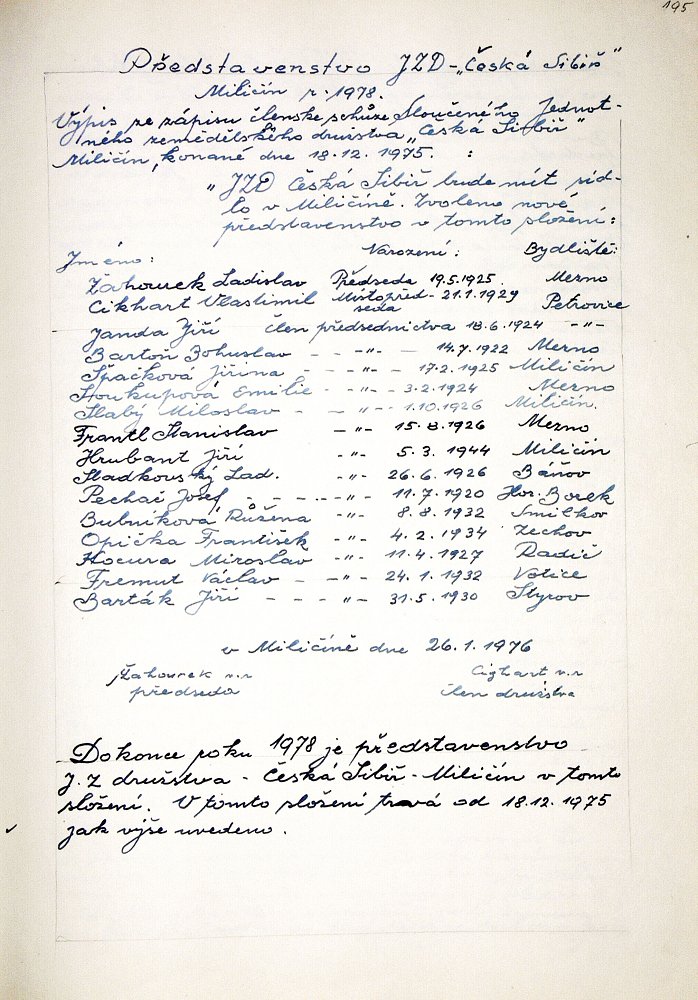 195
Představenstvo JZD - „Česká Sibiř"
Miličín r. 1978.
Výpis ze zápisu členske schůze Sloučeného Jednot-
ného zemědělského družstva „Česká Sibiř"
Miličín, konané dne 18.12. 1975. :
„JZD Česká Sibiř bude mít síd-
lo v Miličíně. Zvoleno nové
představenstvo v tomto složení:
Jméno: Narození: Bydliště:
Žahourek Ladislav Předseda 19.5.1925. Mezno
Cikhart Vlastimil Místopřed- 21.1.1929 Petrovice
seda
Janda Jiří Člen předsednictva 18.6.1924 -"-
Bartoň Bohuslav - - -"- - 14.7.1922 Mezno
Špačková Jiřina - - - -"- - 17.2.1925 Miličín
Soukupová Emilie - -"- - 3.2.1924 Mezno
Slabý Miloslav - - -"- - 1.10.1926 Miličín.
Frantl Stanislav -"- 15.8.1926 Mezno
Hrubant Jiří -"- 5.3.1944 Miličín
Sladkouský Lad. -"- 26.6.1926 Báňov
Pechač Josef - - - - -"- 11.7.1920 Hor. Borek
Bubníková Růžena -"- 8.8.1932 Smilkov
Opička František -"- 4.2.1934 Zechov
Kocura Miroslav -"- 11.4.1927 Radíč
Fremut Václav - - -"- 24.1.1932 Votice
Barták Jiří - - - - -"- 31.5.1930 Styrov
v Miličíně dne 26.1.1976
Žahourek v.r Cighart v.r
předseda člen družstva
Dokonce roku 1978 je představenstvo
J.Z družstva - Česká Sibiř - Miličín v tomto
složení. V tomto složení trvá od 18.12.1975
jak výše uvedeno.